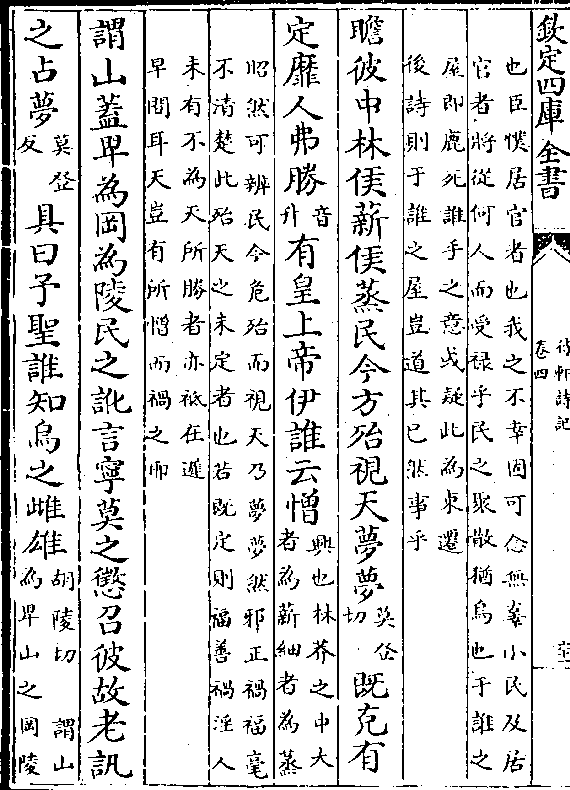 欽定四庫全書
待軒詩記
卷四
也臣僕居官者也我之不幸固可念無辜小民及居
官者將從何人而受祿乎民之聚散猶烏也于誰之
屋即鹿死誰手之意或疑此為東遷
後詩則于誰之屋豈道其已然事乎
瞻彼中林侯薪侯蒸民今方殆視天夢夢莫登切既克有
定靡人弗勝音升有皇上帝伊誰云憎興也林莽之中大
者為薪細者為蒸
昭然可辨民今危殆而視天乃夢夢然邪正禍福毫
不清楚此殆天之未定者也若既定則福善禍淫人
未有不為天所勝者亦祗在遲
早間耳天豈有所憎而禍之耶
謂山蓋卑為岡為陵民之訛言寧莫之懲召彼故老訊
之占夢莫登反具曰予聖誰知烏之雌雄胡陵切 謂山
為卑山之岡陵